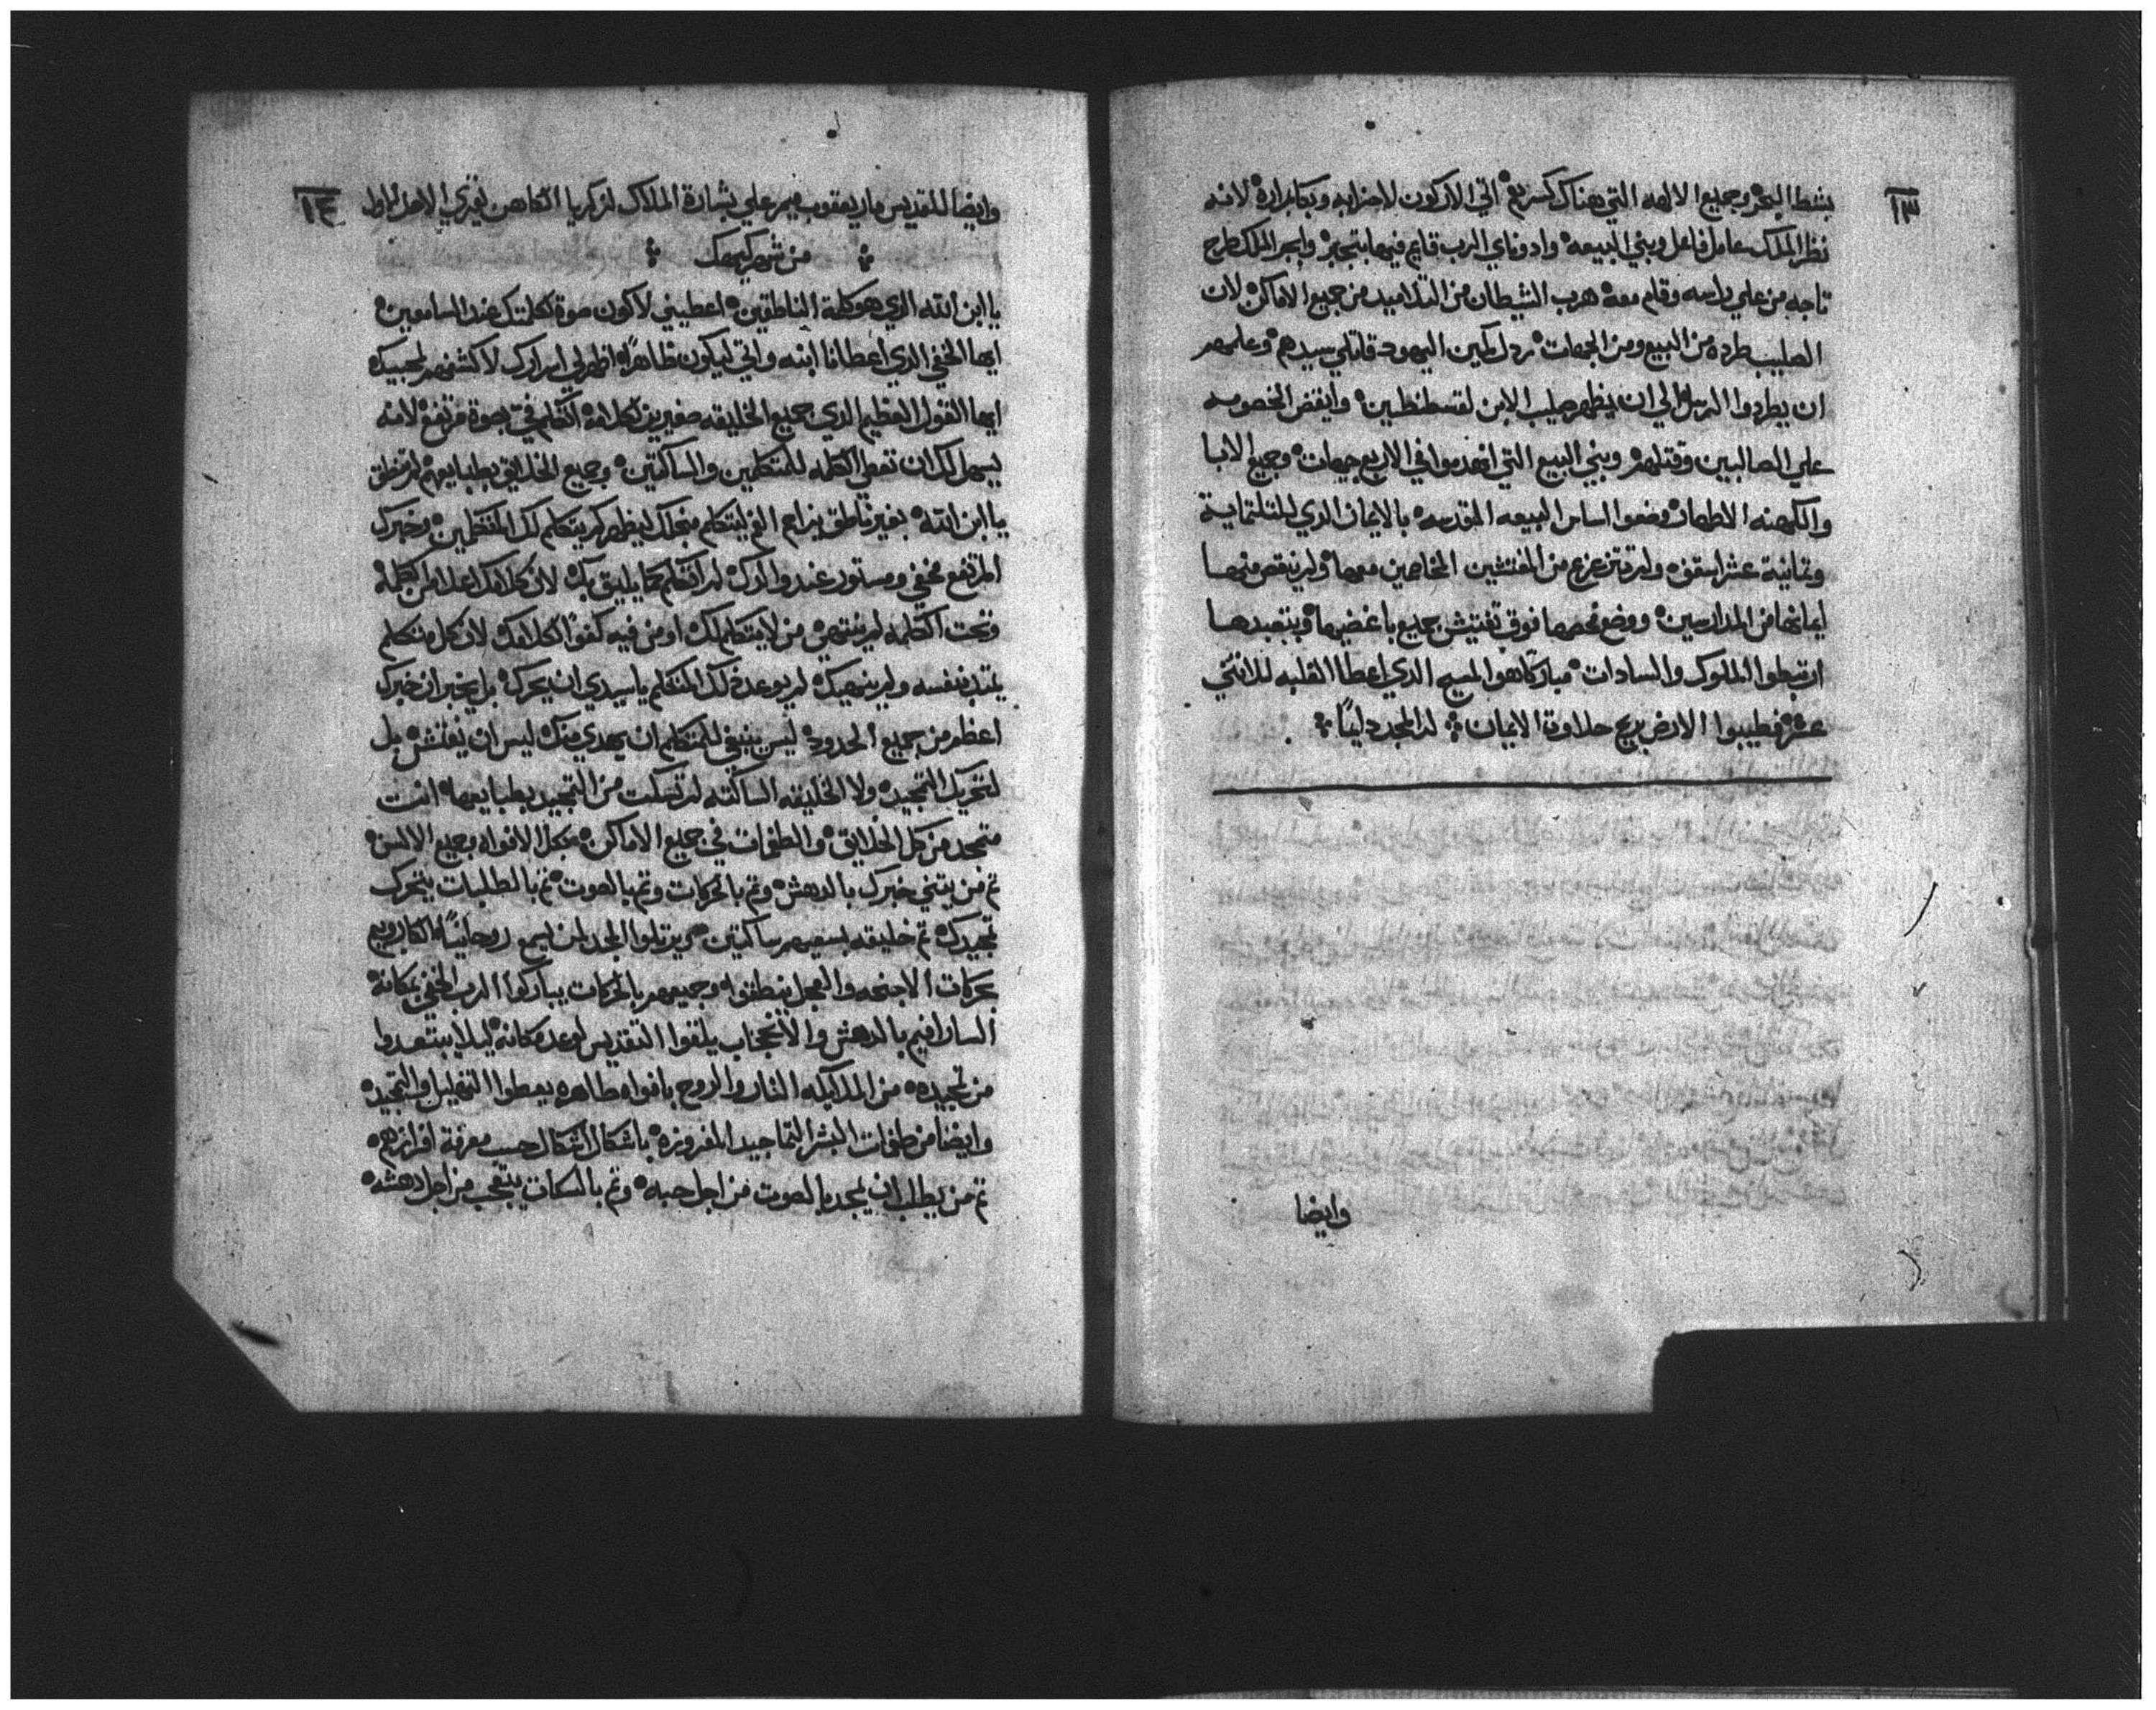 ١٣
بشط البحر وجميع الالهه التي هناك كسرتم اتي الاركون لاحزابه وبكابراره لانه
نظر الملك عامل فاعل ويبني البيعه وادوناي الرب قايم فيها بتجبر وابجر الملك طرح
تاجه من علي راسه وقام معه هرب الشيطان من التلاميد من جميع الاماكن لان
الصليب طرده من البيع ومن الجهات ردل ملكين اليهود قاتلي سيدهم وعلمهم
ان يطردوا الرسل الي ان يظهر صليب الابن لقسطنطين وانقض الخصومه
علي الصالبين وقتلهم وبني البيع التي انهدموا في الاربع جهات وجميع الابا
والكهنه الاطهار وضعوا اساس البيعه المقدسه بالايمان الدي للتلتماية
وتمانية عشر اسقف ولم تتزعزع من المفتشين الخاصين معها ولم ينقص منها
ايمانها من المدارسين ووضع فحصها فوق تفتيش جميع باغضيها وبتعبدها
ارتبطوا الملوك والسادات مبارك هو المسيح الدي اعطا الغلبه للاتني
عشر فطيبوا الارض بريح حلاوة الايمان له المجد دايمًا
وايضا
وايضا للقديس مار يعقوب ميمر علي بشارة الملاك لزكريا الكاهن يقري الاحد الاول ١٤
من شهر كيهك
يا ابن الله الدي هو كلمة الناطقين اعطيني لاكون صوة لكلمتك عند السامعين
ايها الخفي الدي اعطانا ابنه واتي ليكون ظاهرًا اظهر لي اسرارك لاكشفهم لمحبيك
ايها القول العظيم الدي جميع الخليقه صغيرين لكلامه اتكلم في بصوة مرتفع لانه
يسهل لك ان تعطي الكلمه للمتكلمين والساكتين وجميع الخلايق بطبايعهم لم تنطق
يا ابن الله بغير ناطق يزاع الفم ليتكلم منجلك ليظهر كم يتكلم لك المتكلمين وخبرك
المرتفع مخفي ومستور عند والدك لم اتكلم كما يليق بك لان كلامك اعلا من الكلمة
وتحت الكلمه لم ينتهي من لا يتكلم لك او من فيه كفوًا لكلامك لان كل متكلم
يبتد بنفسه ولم ينهيك لم يوعد لك المتكلم يا سيدي ان يحرك بل يخبر ان خبرك
اعظم من جميع الحدود ليس ينبغي للمتكلم ان يهدي منك ليس ان يفتش بل
لتحريك التمجيد ولا الخليقه الساكته لم تسكت من التمجيد بطبايعها انت
متمجد من كل الخلايق والطغمات في جميع الاماكن بكل الافواه وجميع الالسن
تم من يتني خبرك بالدهش وتم بالحركات وتم بالصوت تم بالطلبات يتحرك
تمجيدك تم خليقه بسعيهم ساكتين ويرتلوا المجد لمن يسمع روحانيًا الكاروبيم
بحركات الاجنحه والعجل ينطقوا وجميعهم بالحركات يباركوا الرب الخفي بمكانه
السارافيم بالدهش والانحجاب يلقوا التقديس لوعد مكانه ليلا يبتعدوا
من تمجيده من الملايكه النار والروح بافواه طاهره يعطوا التهليل والتمجيد
وايضا من طغمات البشر التماجيد المفروزه باشكال اشكال حسب معرفة افرازهم
تم من يطلب ان يمجد بالصوت من اجل حبه وتم بالسكات يتعجب من اجل دهشه